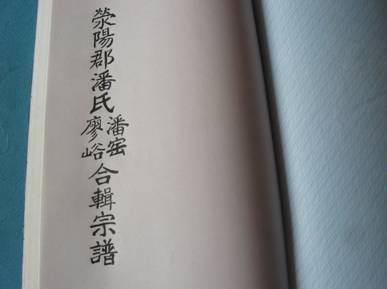 滎陽郡潘氏潘窑廖峪合輯宗譜